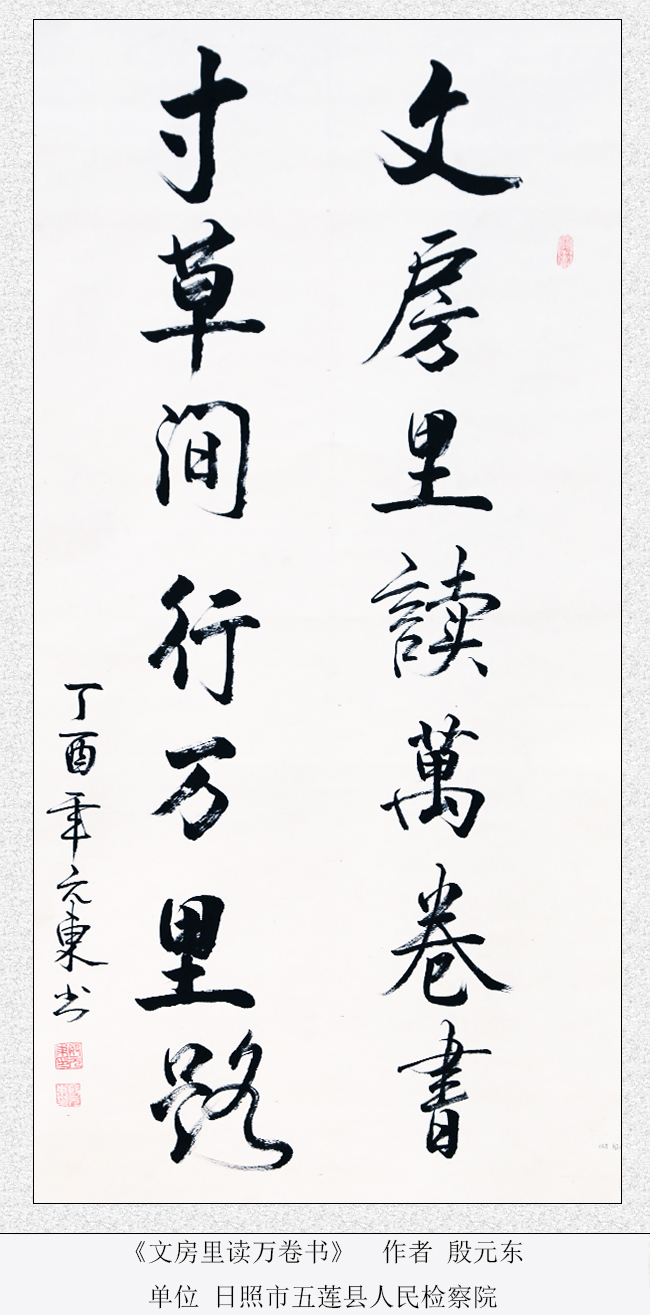 文房里读萬卷書
寸草间行万里路
丁酉年元東书
《文房里读万卷书》 作者 殷元东
单位 日照市五莲县人民检察院